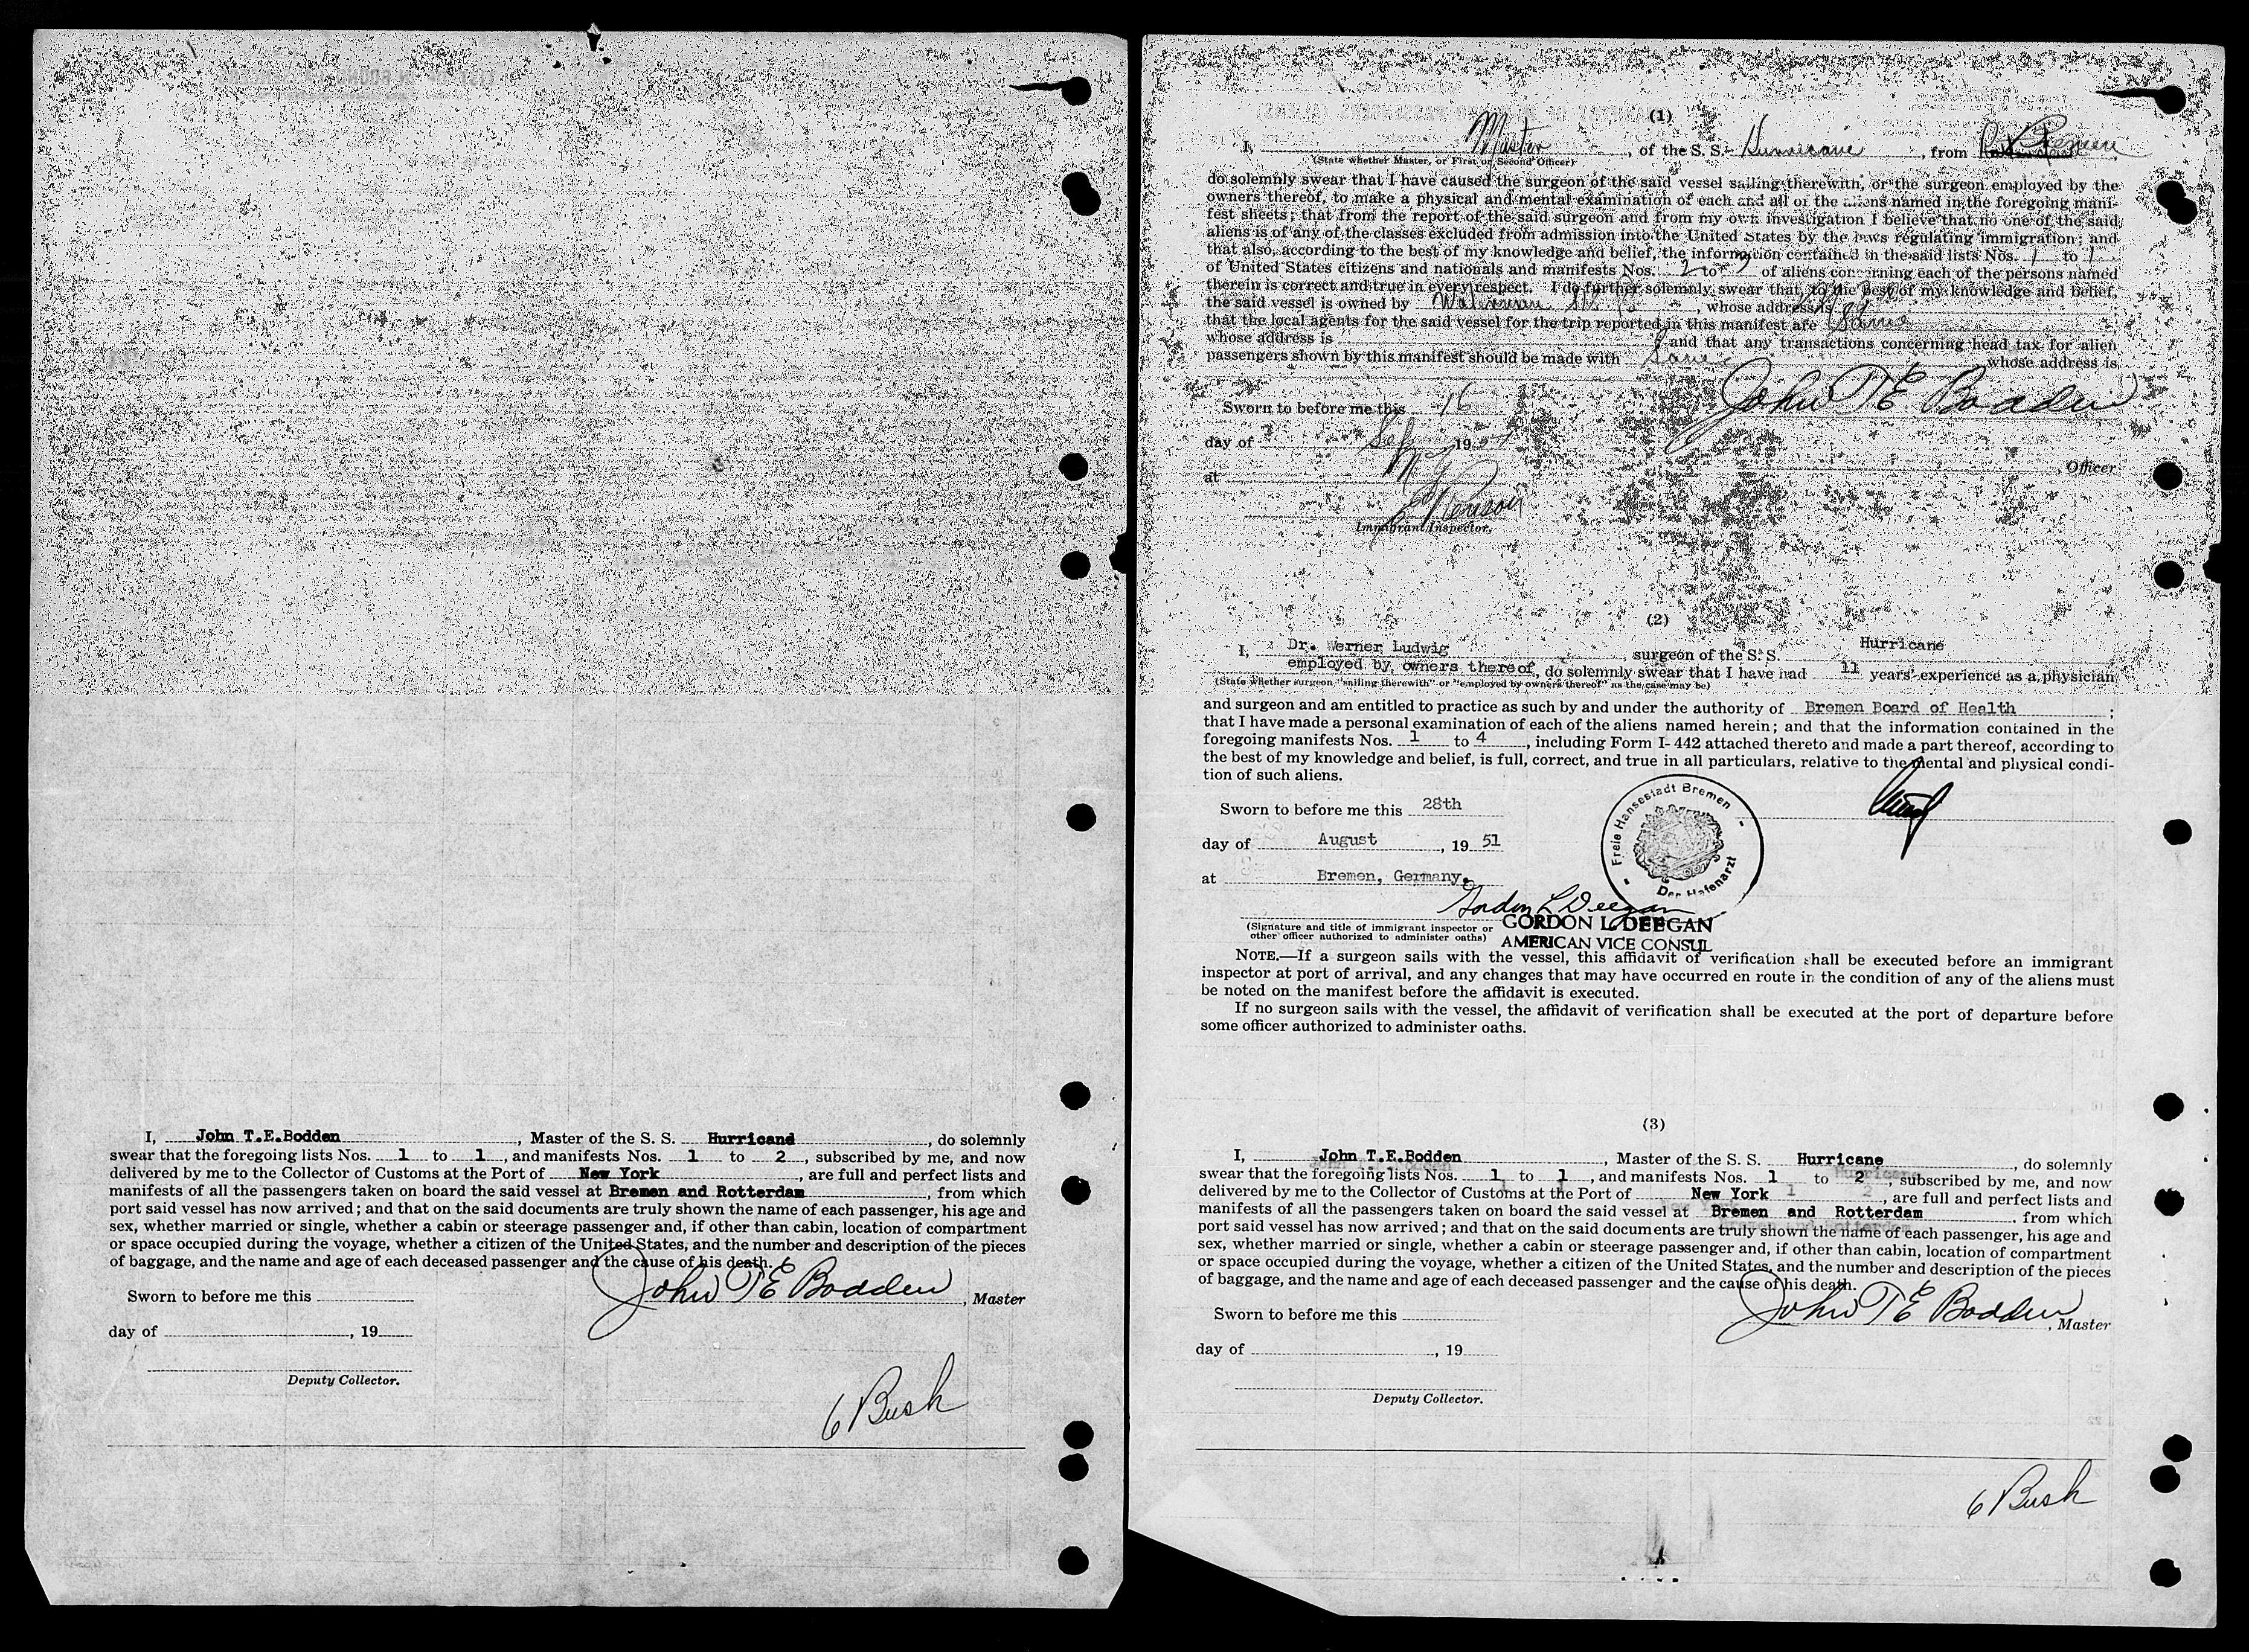 I, John T.E.Bodden, Master of the S. S. Hurricane, do solemnly
swear that the foregoing lists Nos. 1 to 1, and manifests Nos. 1 to 2, subscribed by me, and now
delivered by me to the Collector of Customs at the Port of New York, are full and perfect lists and
manifests of all the passengers taken on board the said vessel at Bremen and Rotterdam, from which
port said vessel has now arrived; and that on the said documents are truly shown the name of each passenger, his age and
sex, whether married or single, whether a cabin or steerage passenger and, if other than cabin, location of compartment
or space occupied during the voyage, whether a citizen of the United States, and the number and description of the pieces
of baggage, and the name and age of each deceased passenger and the cause of his death.
John T E Bodden, Master
Sworn to before me this
day of , 19
Deputy Collector.
6 Bush
(1)
I, Master, of the S. S. Hurricane, from Bremen
(State whether Master, or First or Second Officer)
do solemnly swear that I have caused the surgeon of the said vessel sailing therewith, or the surgeon employed by the
owners thereof, to make a physical and mental examination of each and all of the aliens named in the foregoing mani-
fest sheets; that from the report of the said surgeon and from my own investigation I believe that no one of the said
aliens is of any of the classes excluded from admission into the United States by the laws regulating immigration; and
that also, according to the best of my knowledge and belief, the information contained in the said lists Nos. 1 to 1
of United States citizens and nationals and manifests Nos. 2 to 3 of aliens concerning each of the persons named
therein is correct and true in every respect. I do further solemnly swear that, to the best of my knowledge and belief,
the said vessel is owned by Waterman , whose address is
that the local agents for the said vessel for the trip reported in this manifest are Same
whose address is and that any transactions concerning head tax for alien
passengers shown by this manifest should be made with Same whose address is
John T E Bodden
Sworn to before me this 16
day of Sep 19
, Officer
at
Immigrant Inspector.
(2)
I, Dr. Werner Ludwig, surgeon of the S. S. Hurricane
employed by owners thereof, do solemnly swear that I have had 11 years' experience as a physician
(State whether surgeon "sailing therewith" or "employed by owners thereof" as the case may be)
and surgeon and am entitled to practice as such by and under the authority of Bremen Board of Health;
that I have made a personal examination of each of the aliens named herein; and that the information contained in the
foregoing manifests Nos. 1 to 4, including Form I-442 attached thereto and made a part thereof, according to
the best of my knowledge and belief, is full, correct, and true in all particulars, relative to the mental and physical condi-
tion of such aliens.
Freie Hansestadt Bremen
Der Hafenarzt
Sworn to before me this 28th
day of August, 19 51
at Bremen, Germany.
Gordon L Deegan
GORDON L. DEEGAN
AMERICAN VICE CONSUL
(Signature and title of immigrant inspector or
other officer authorized to administer oaths)
NOTE.—If a surgeon sails with the vessel, this affidavit of verification shall be executed before an immigrant
inspector at port of arrival, and any changes that may have occurred en route in the condition of any of the aliens must
be noted on the manifest before the affidavit is executed.
If no surgeon sails with the vessel, the affidavit of verification shall be executed at the port of departure before
some officer authorized to administer oaths.
(3)
I, John T.E.Bodden, Master of the S. S. Hurricane, do solemnly
swear that the foregoing lists Nos. 1 to 1, and manifests Nos. 1 to 2, subscribed by me, and now
delivered by me to the Collector of Customs at the Port of New York, are full and perfect lists and
manifests of all the passengers taken on board the said vessel at Bremen and Rotterdam, from which
port said vessel has now arrived; and that on the said documents are truly shown the name of each passenger, his age and
sex, whether married or single, whether a cabin or steerage passenger and, if other than cabin, location of compartment
or space occupied during the voyage, whether a citizen of the United States, and the number and description of the pieces
of baggage, and the name and age of each deceased passenger and the cause of his death.
John T E Bodden, Master
Sworn to before me this
day of , 19
Deputy Collector.
6 Bush